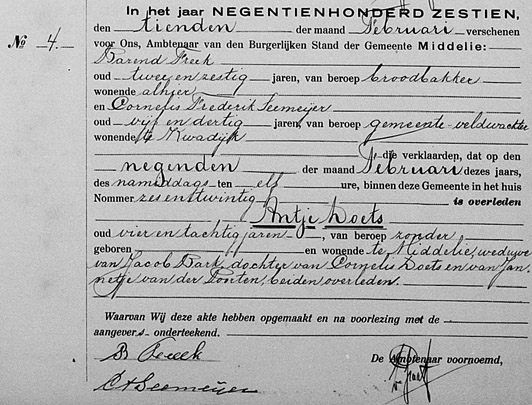 In het jaar NEGENTIENHONDERD ZESTIEN,
den tienden der maand Februari verschenen
No 4. voor Ons, Ambtenaar van den Burgerlijken Stand der Gemeente Middelie:
Barend
oud twee en zestig jaren, van beroep broodbakker
wonende alhier
en Cornelis Frederik Seemeijer
oud vijf en dertig jaren, van beroep gemeente-veldwachter
wonende te Kwadijk
die verklaarden, dat op den
negenden der maand Februari dezes jaars,
des namiddags ten elf ure, binnen deze Gemeente in het huis
Nommer zes en twintig is overleden
Antje Doets
oud vier en tachtig jaren, van beroep zonder
geboren en wonende te Middelie, weduwe
van Jacob Bark, dochter van Cornelis Doets en van Jan
netje van der beiden overleden.
Waarvan Wij deze akte hebben opgemaakt en na voorlezing met de
aangevers onderteekend.
B
De Ambtenaar voornoemd,
CF Seemeijer